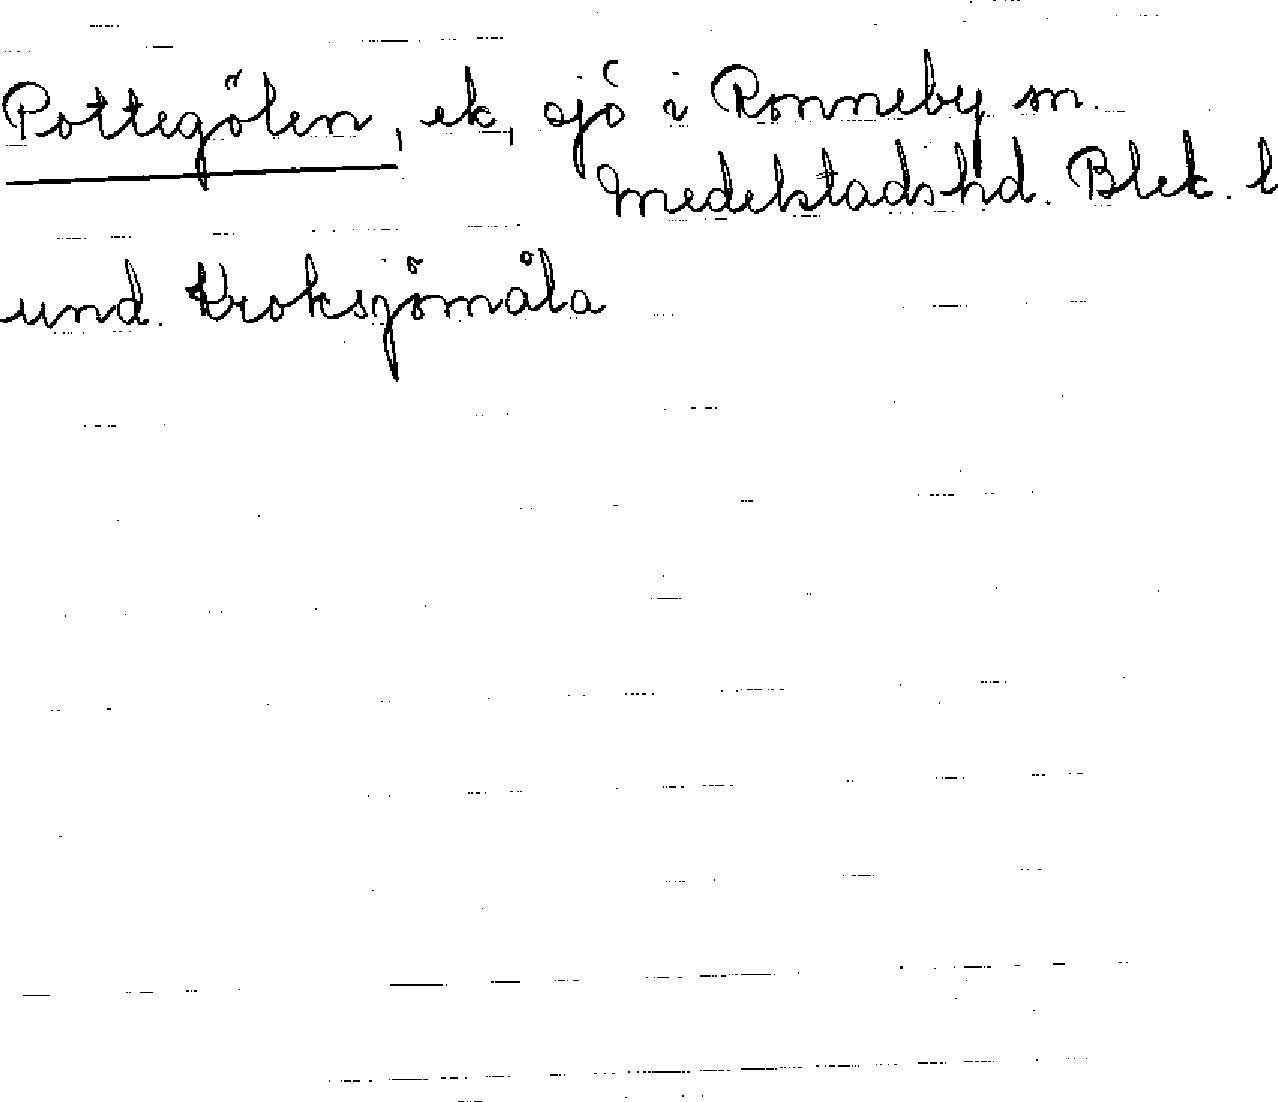 Pottegölen, ek, sjö i Ronneby sn.
Medelstads hd. Blek. l
und. Kroksjömåla